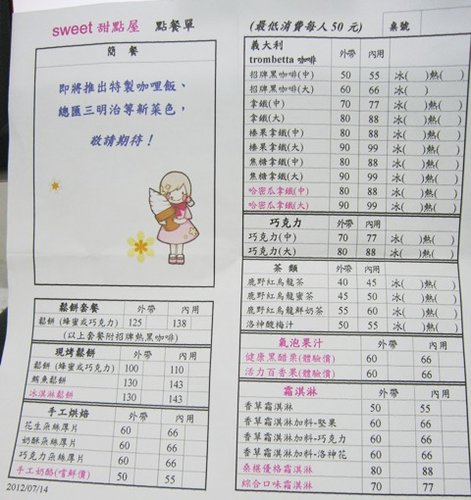 sweet 甜點屋 點餐單
簡餐
即將推出特製咖哩飯、
總匯三明治等新菜色,
敬請期待!
鬆餅套餐 外帶 內用
鬆餅 (蜂蜜或巧克力) 125 138
(以上套餐附招牌熱黑咖啡)
現烤鬆餅 外帶 內用
鬆餅 (蜂蜜或巧克力) 100 110
鮪魚鬆餅 130 143
冰淇淋鬆餅 130 143
手工烘焙 外帶 內用
花生朵絲厚片 60 66
奶酥朵絲厚片 60 66
巧克力朵絲厚片 60 66
手工奶酪(嚐鮮價) 50 55
2012/07/14
(最低消費每人 50 元) 桌號
義大利
trombetta 咖啡 外帶 內用
招牌黑咖啡(中) 50 55 冰( )熱( )
招牌黑咖啡(大) 60 66 冰( )熱( )
拿鐵(中) 70 77 冰( )熱( )
拿鐵(大) 80 88 冰( )熱( )
榛果拿鐵(中) 80 88 冰( )熱( )
榛果拿鐵(大) 90 99 冰( )熱( )
焦糖拿鐵(中) 80 88 冰( )熱( )
焦糖拿鐵(大) 90 99 冰( )熱( )
哈密瓜拿鐵(中) 80 88 冰( )熱( )
哈密瓜拿鐵(大) 90 99 冰( )熱( )
巧克力 外帶 內用
巧克力(中) 70 77 冰( )熱( )
巧克力(大) 80 88 冰( )熱( )
茶類 外帶 內用
鹿野紅烏龍茶 40 45 冰( )熱( )
鹿野紅烏龍蜜茶 45 50 冰( )熱( )
鹿野紅烏龍鮮奶茶 55 60 冰( )熱( )
洛神酸梅汁 50 55 冰( )熱( )
氣泡果汁 外帶 內用
健康黑醋栗(體驗價) 60 66
活力百香果(體驗價) 60 66
霜淇淋 外帶 內用
香草霜淇淋 50 55
香草霜淇淋加料-堅果 60 66
香草霜淇淋加料-巧克力 60 66
香草霜淇淋加料-洛神花 60 66
桑椹優格霜淇淋 80 88
綜合口味霜淇淋 70 77